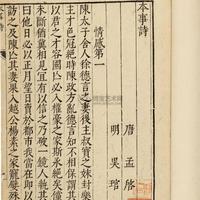 本事詩
唐 孟啓
明 吳琯
情感第一
陳太子舍人徐德言之妻後主叔寶之妹封樂
主才色冠絶時陳政方亂德言知不相保謂其
以君之才容國亡必入權豪之家斯永絶矣儻
未斷猶冀相見宜有以信之乃破一鏡執其
曰他日必以正月望日賣於都市我當在
訪之及陳亡其妻果入越公楊素之家寵嬖殊